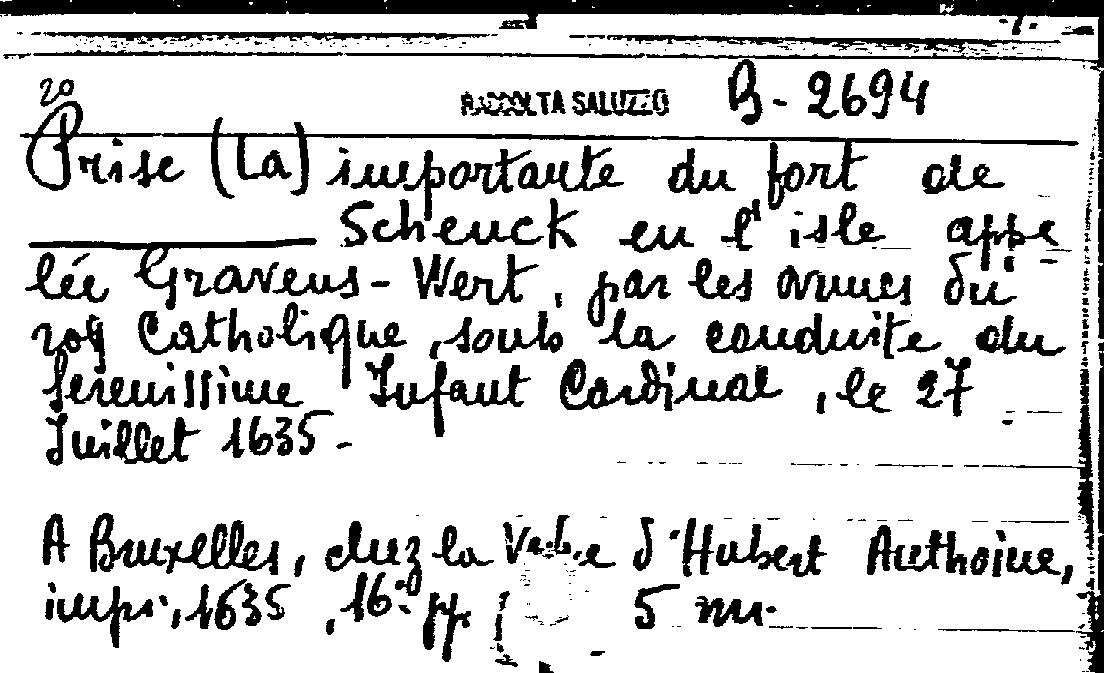 20
RACCOLTA SALUZZO B-2694
Prise (La) importante du fort de
Schenck en l'isle appe
lée Gravens-Wert, par les armes du
roy Catholique, soubs la conduite du
serenissime Infant Cardinal, le 27
Juillet 1635-
A Bruxelles, chez la d'Hubert Anthoine,
impr., 1635, 16.º pp. 5 nn.